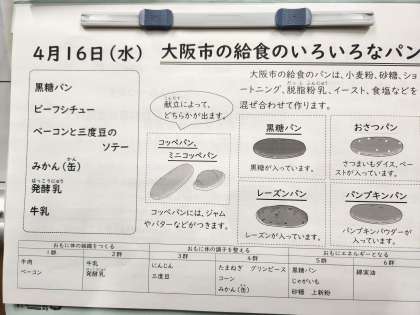 4月16日(水)
大阪市の給食のいろいろなパン
黒糖パン
ビーフシチュー
ベーコンと三度豆の
ソテー
みかん(缶)
かん
発酵乳
はっこうにゅう
牛乳
大阪市の給食のパンは、小麦粉、砂糖、ショ
ートニング、脱脂粉乳、イースト、食塩などを
だっしふんにゅう
混ぜ合わせて作ります。
献立によって、
こんだて
どちらかが出ます。
コッペパン、
ミニコッペパン
コッペパンには、ジャム
やバターなどがつきます。
黒糖パン
黒糖が入っています。
おさつパン
さつまいもダイス、ペー
ストが入っています。
レーズンパン
レーズンが入っています。
パンプキンパン
パンプキンパウダーが
入っています。
おもに体の組織をつくる
おもに体の調子を整える
おもにエネルギーとなる
1群
2群
3群
4群
5群
6群
牛肉
ベーコン
牛乳
発酵乳
にんじん
三度豆
たまねぎ グリンピース
コーン
みかん(缶)
黒糖パン
じゃがいも
砂糖 上新粉
綿実油